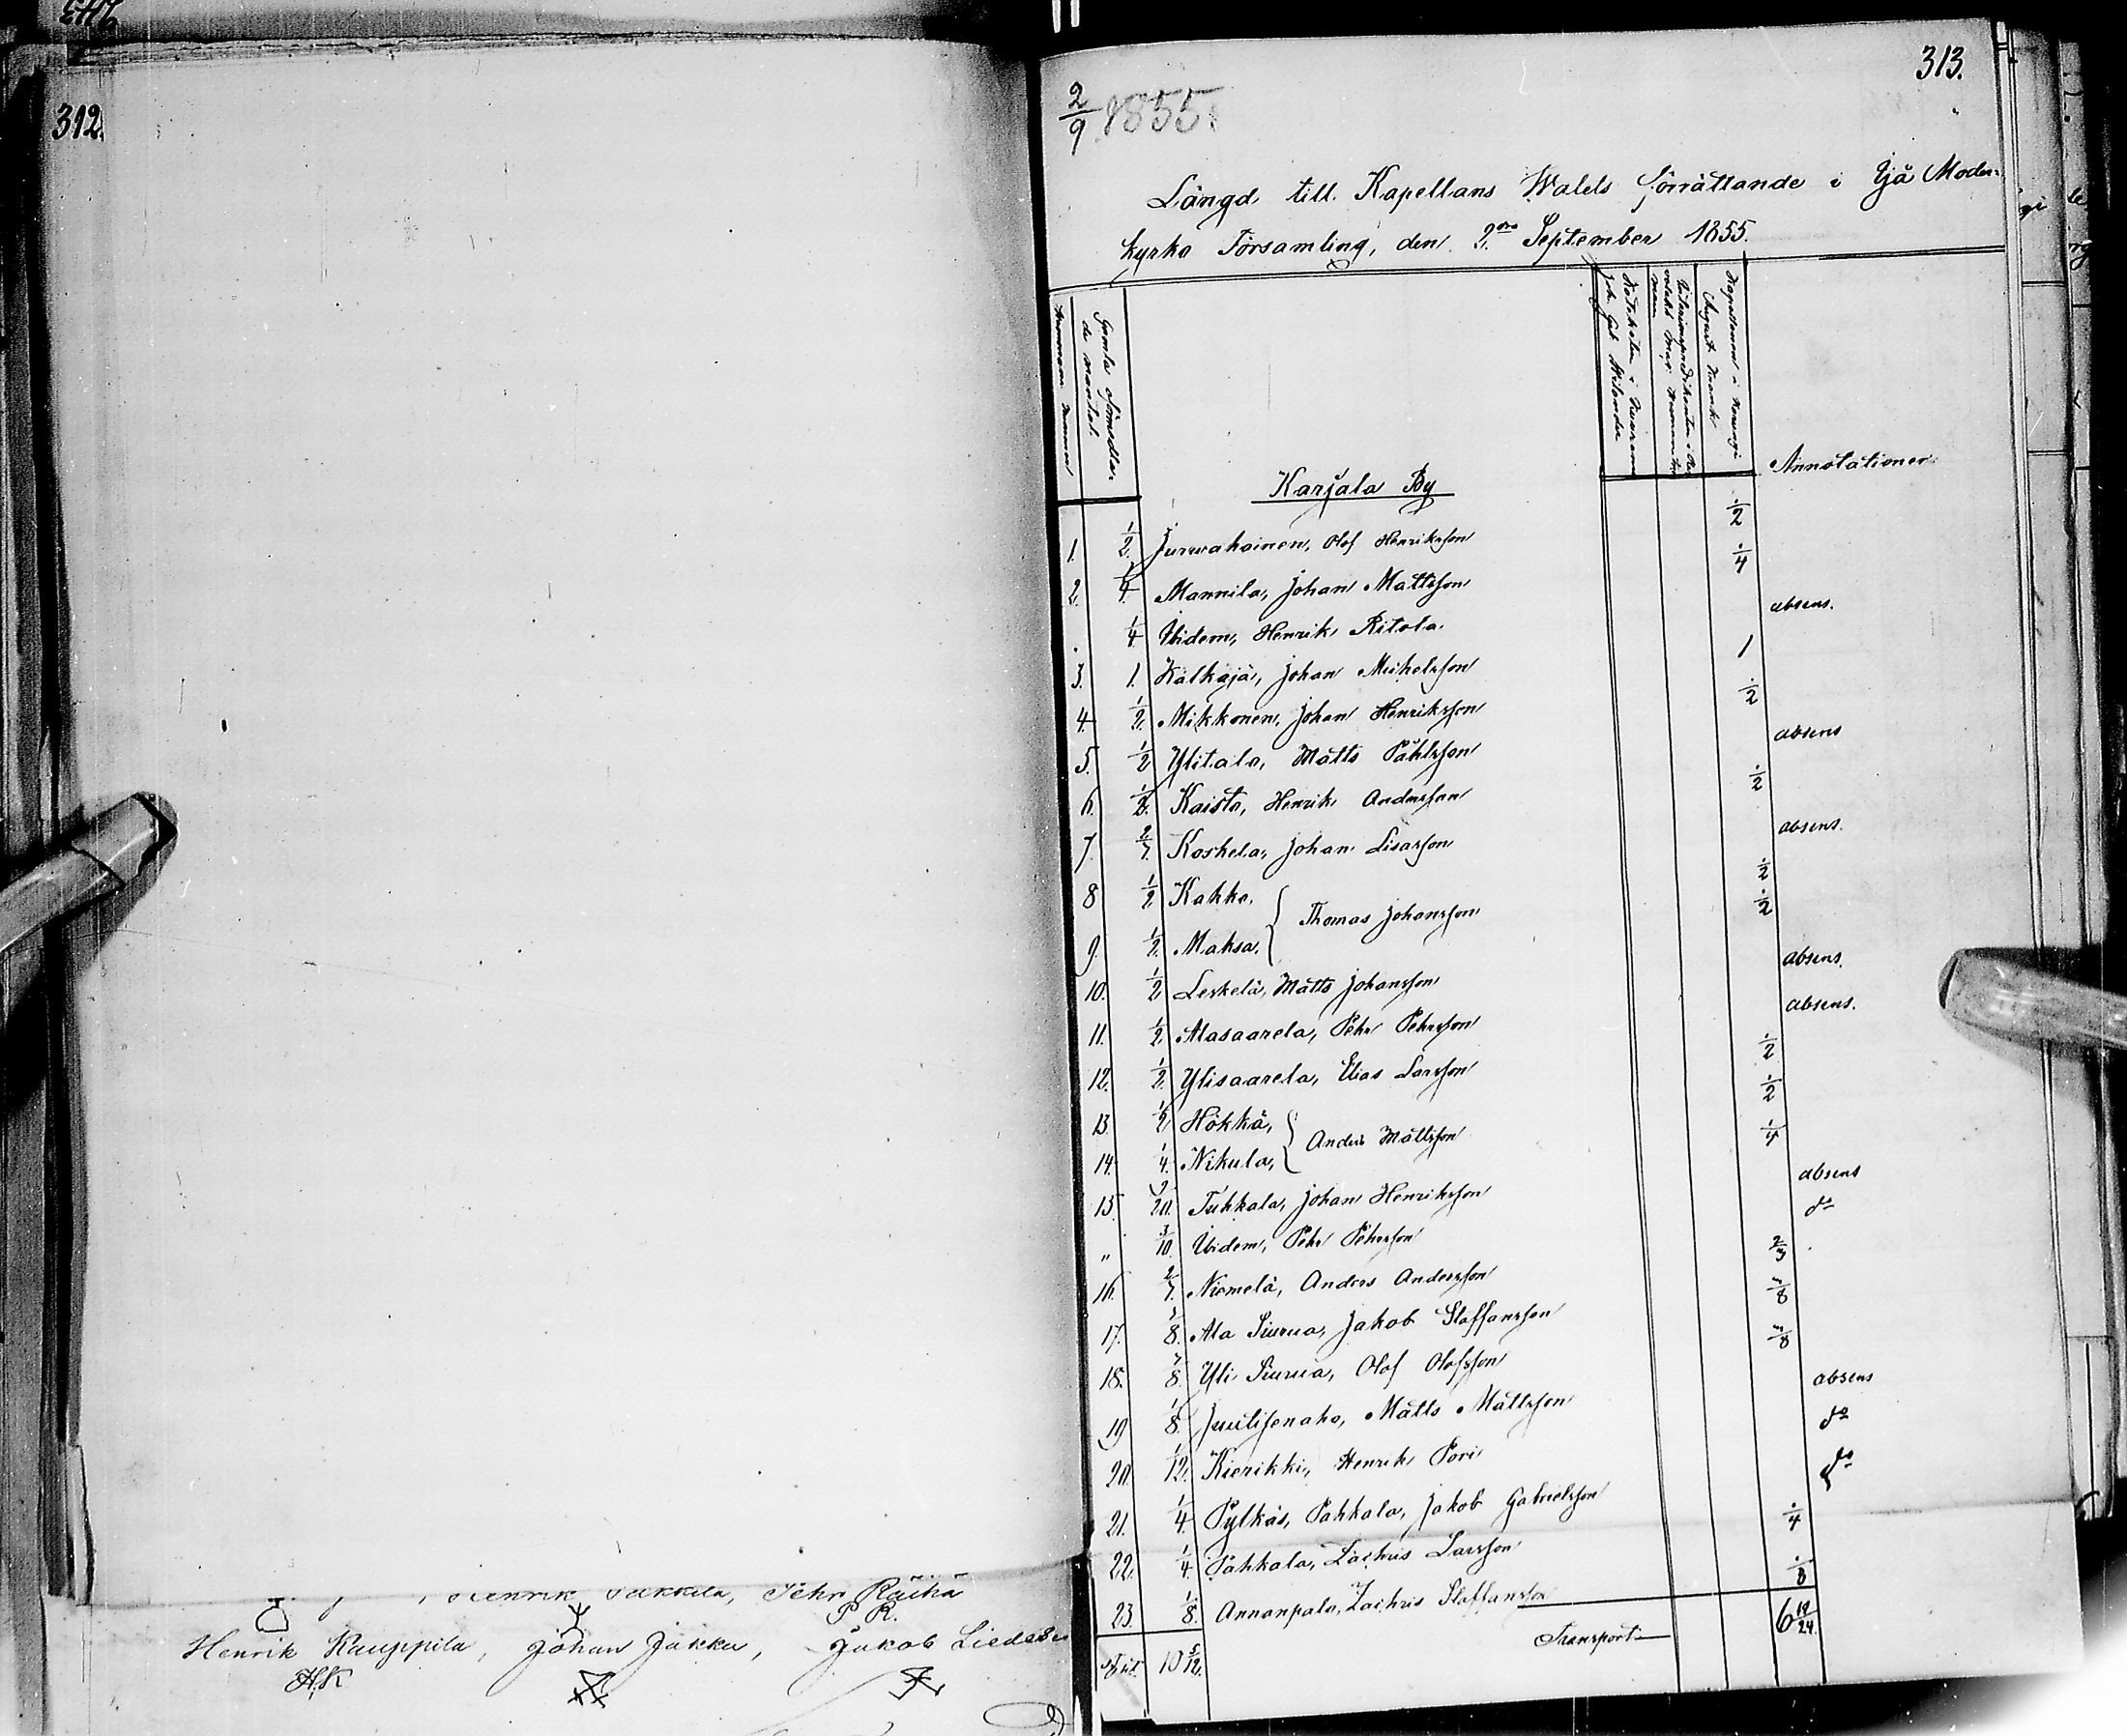 312.
Henrik Pakkila, Pehr Räihä
P. R.
Henrik Kauppila, Johan Jakku, Jakob Liedes
H.K
313.
2/9 1855.
Längd till Kapellans Walets förrättande i Ijå Moder-
kyrko Församling, den 2dra September 1855.
Gamla oförmedla-
de mantal.
Kapellanen i
August
Annotationer
Karjala By
1. 1/2. Jurwahainen, Olof Henriksson 1/2
2. 1/4. Mannila, Johan Mattsson 1/4
1/4 Ibidem, Henrik Ritola. absens.
3. 1. Kälkäjä, Johan Michelsson 1
4. 1/2. Mikkonen, Johan Henriksson 1/2
5. 1/2 Ylitalo, Matts Påhlsson absens
6. 1/2. Kaisto, Henrik Andersson 1/2
7. Koskela, Johan Lisasson absens.
8 1/2 Kakko, 1/2
Thomas Johansson
9. 1/2. Maksa, 1/2
10. 1/2 Leskelä, Matts Johansson absens.
11. 1/2 Alasaarela, Pehr Pehrsson absens.
12. 1/2. Ylisaarela, Elias Larsson 1/2
13. 1/2 Hökkä, 1/2
Anders Mattsson
14. 1/4. Nikula, 1/4
15. Tuhkala, Johan Henriksson absens
" 3/10. Ibidem, Pehr Pehrsson do
16. Niemelä, Anders Andersson 2/3
17. Ala Siurua, Jakob Staffansson
18. Yli Siurua, Olof Olofsson
19 1/8. Juulisenaho, Matts Mattsson absens
20. 1/12. Kierikki, Henrik Pori do
21. 1/4. Pylkäs, Pahkala, Jakob Gabrielsson do
22. 1/4. Pahkala, Zachris Larsson 1/4
23. 1/8. Annanpalo, Zachris Staffansson 1/8
10 5/12. Transport 6 19/24.